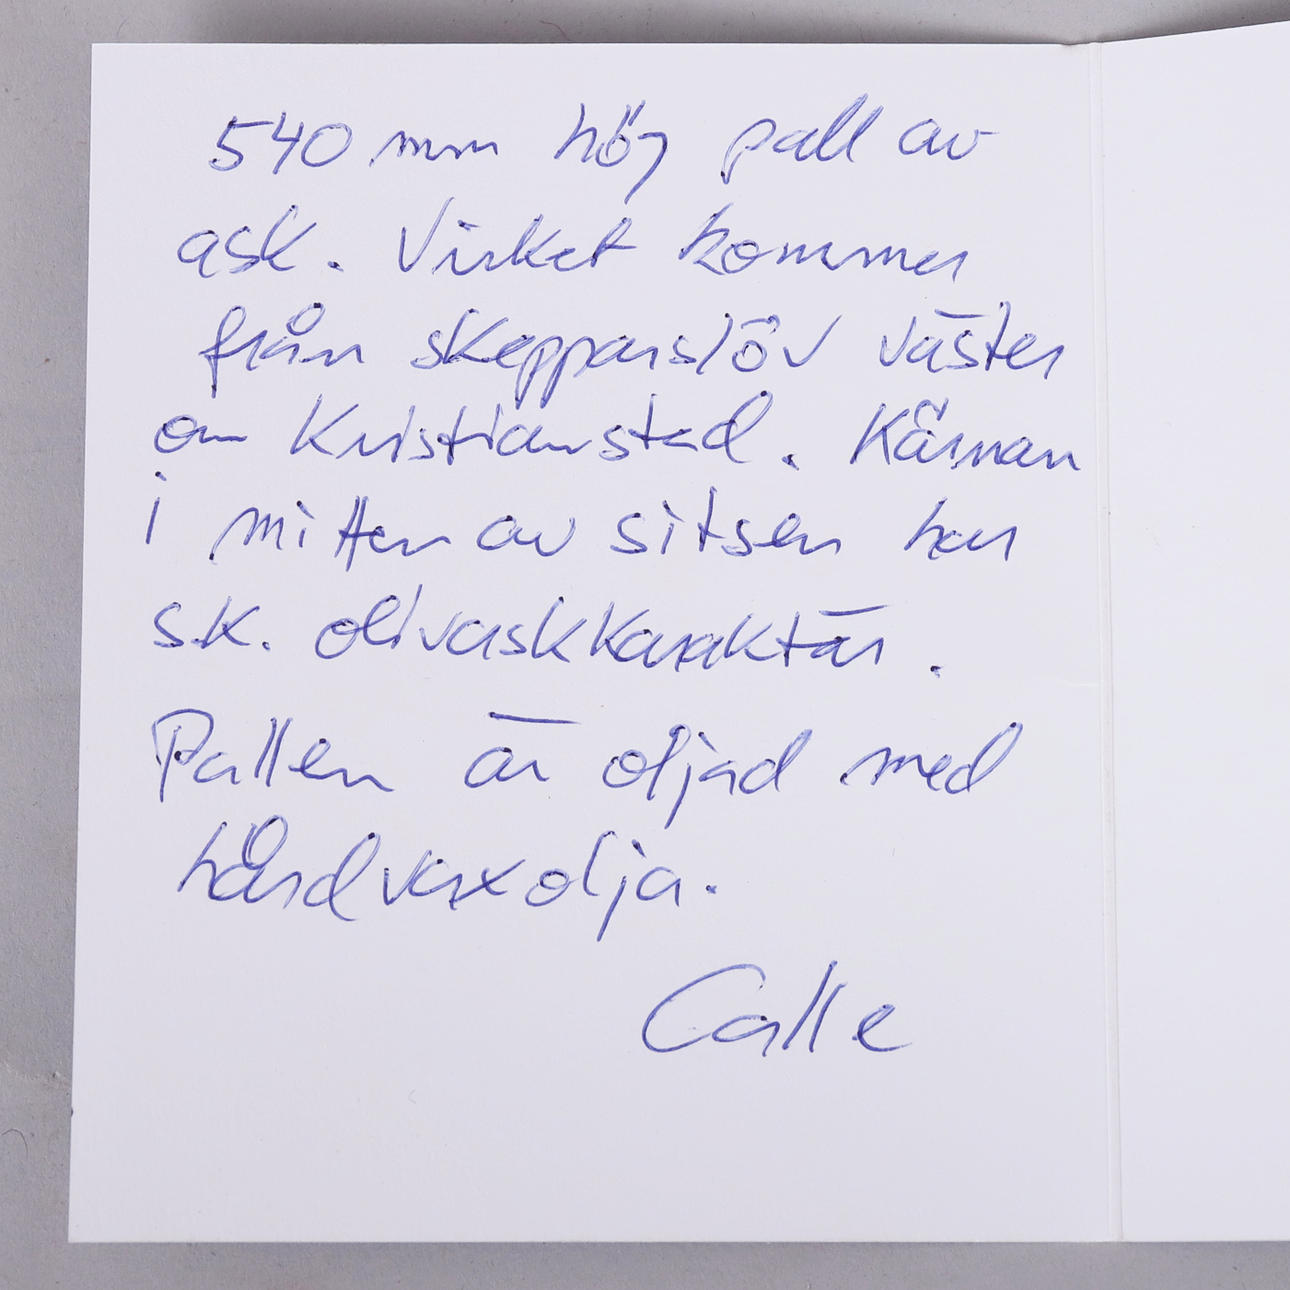 540 mm hög pall av
ask. Virket kommer
från skepparslöv väster
om Kristianstad. Kärnan
i mitten av sitsen har
s.k. olivaskkaraktär.
Pallen är oljad med
hårdvaxolja.
Calle